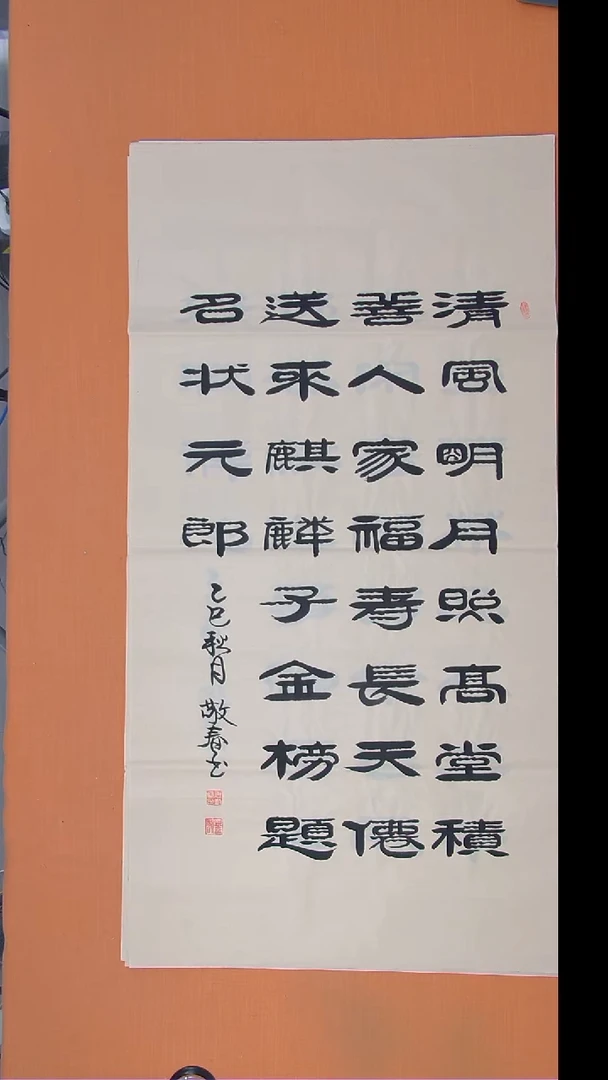 清風明月照高堂積
善人家福壽長天僊
送來麒麟子金榜題
名狀元郎
乙巳秋月 敬春书